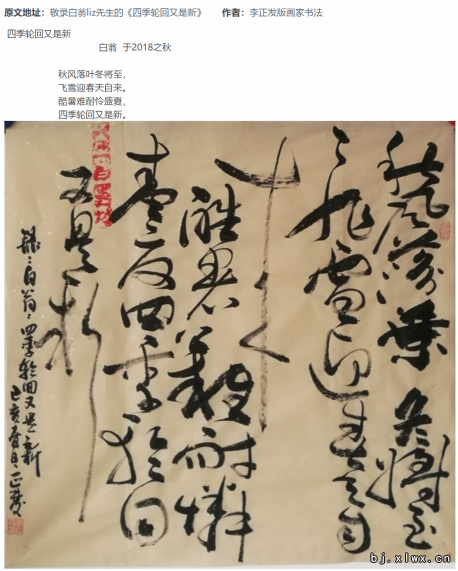 原文地址：敬录白翁liz先生的《四季轮回又是新》 作者：李正发版画家书法
四季轮回又是新
白翁 于2018之秋
秋风落叶冬将至，
飞雪迎春天自来。
酷暑难耐怜盛夏，
四季轮回又是新。
秋風落葉冬將至
飞雪迎春天自
来
酷暑難耐憐
盛夏四季轮回
又是新
録白翁四季轮回又是新
己亥春月正發
bj.xlwx.cn